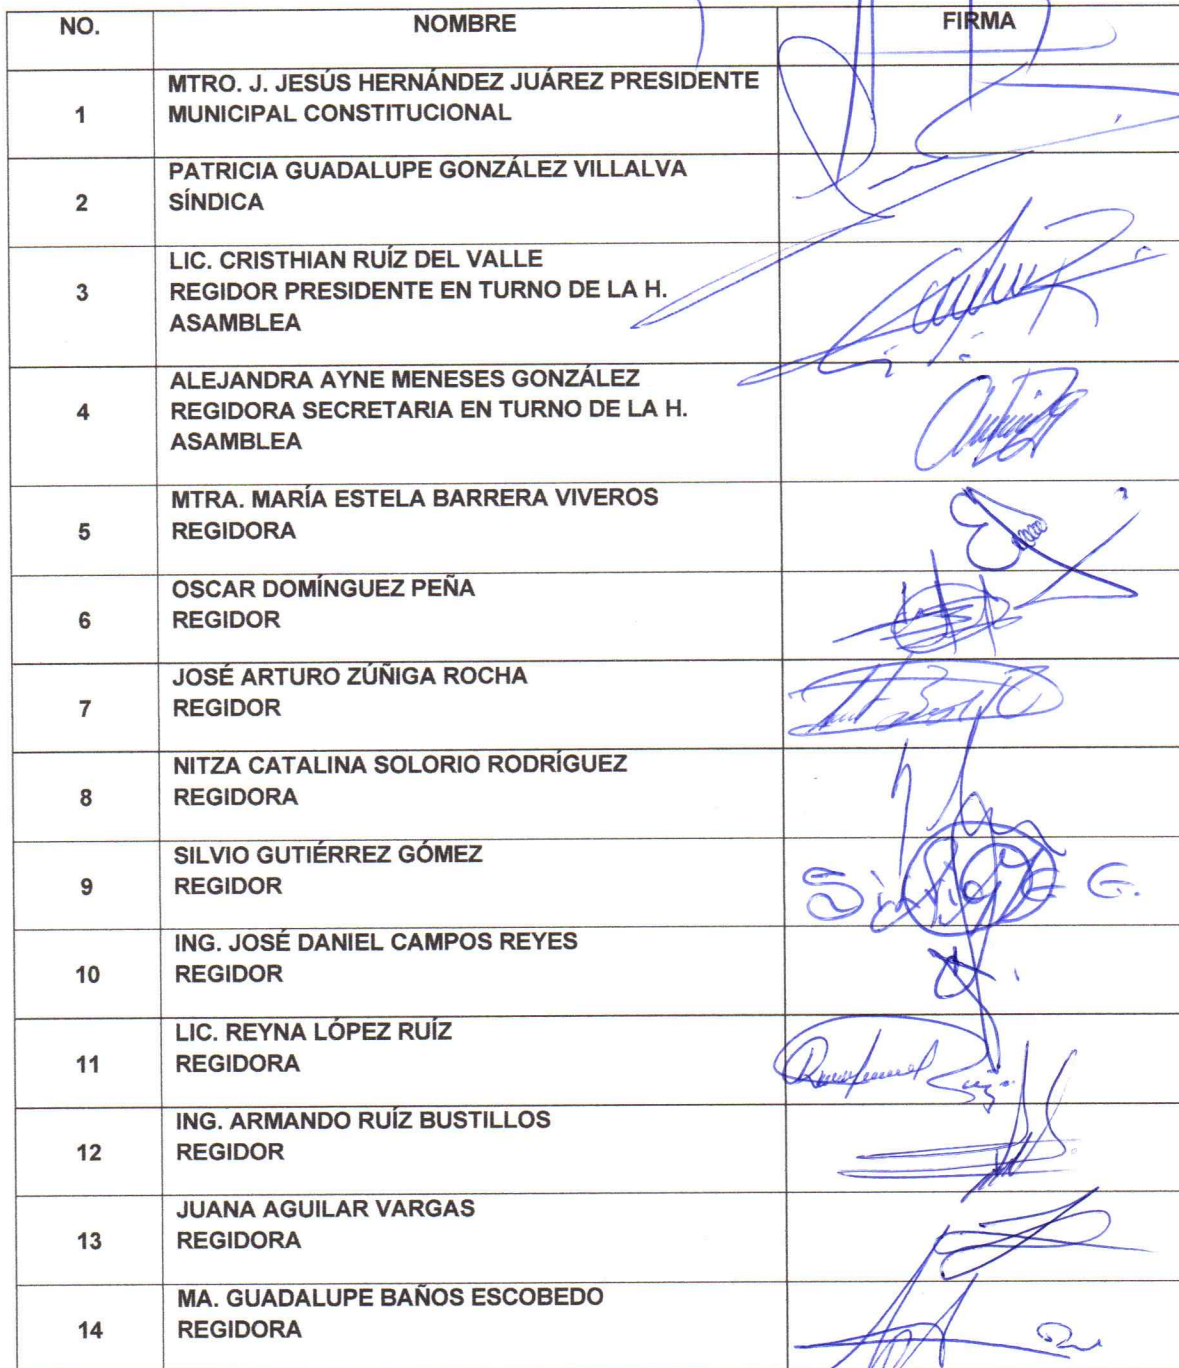 NO. NOMBRE FIRMA
MTRO. J. JESÚS HERNÁNDEZ JUÁREZ PRESIDENTE
1 MUNICIPAL CONSTITUCIONAL
PATRICIA GUADALUPE GONZÁLEZ VILLALVA
2 SÍNDICA
LIC. CRISTHIAN RUÍZ DEL VALLE
3 REGIDOR PRESIDENTE EN TURNO DE LA H.
ASAMBLEA
ALEJANDRA AYNE MENESES GONZÁLEZ
4 REGIDORA SECRETARIA EN TURNO DE LA H.
ASAMBLEA
MTRA. MARÍA ESTELA BARRERA VIVEROS
5 REGIDORA
OSCAR DOMÍNGUEZ PEÑA
6 REGIDOR
JOSÉ ARTURO ZÚÑIGA ROCHA
7 REGIDOR
NITZA CATALINA SOLORIO RODRÍGUEZ
8 REGIDORA
SILVIO GUTIÉRREZ GÓMEZ
9 REGIDOR
ING. JOSÉ DANIEL CAMPOS REYES
10 REGIDOR
LIC. REYNA LÓPEZ RUÍZ
11 REGIDORA
ING. ARMANDO RUÍZ BUSTILLOS
12 REGIDOR
JUANA AGUILAR VARGAS
13 REGIDORA
MA. GUADALUPE BAÑOS ESCOBEDO
14 REGIDORA